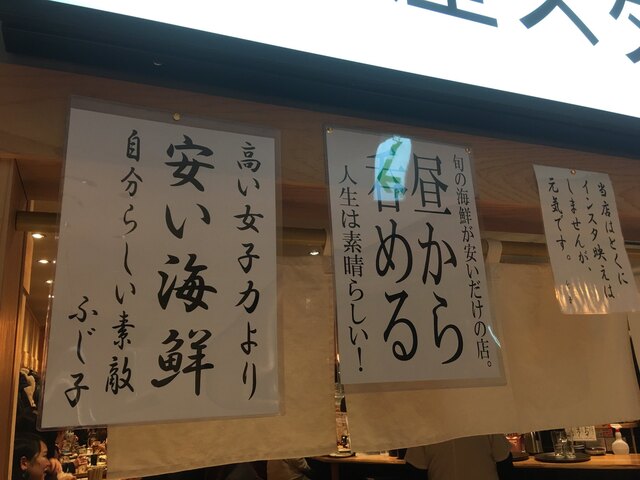 高い女子力より
安い海鮮
自分らしい素敵
ふじ子
旬の海鮮が安いだけの店。
昼から
呑める
人生は素晴らしい!
当店はとくに
インスタ映えは
しませんが、
元気です。